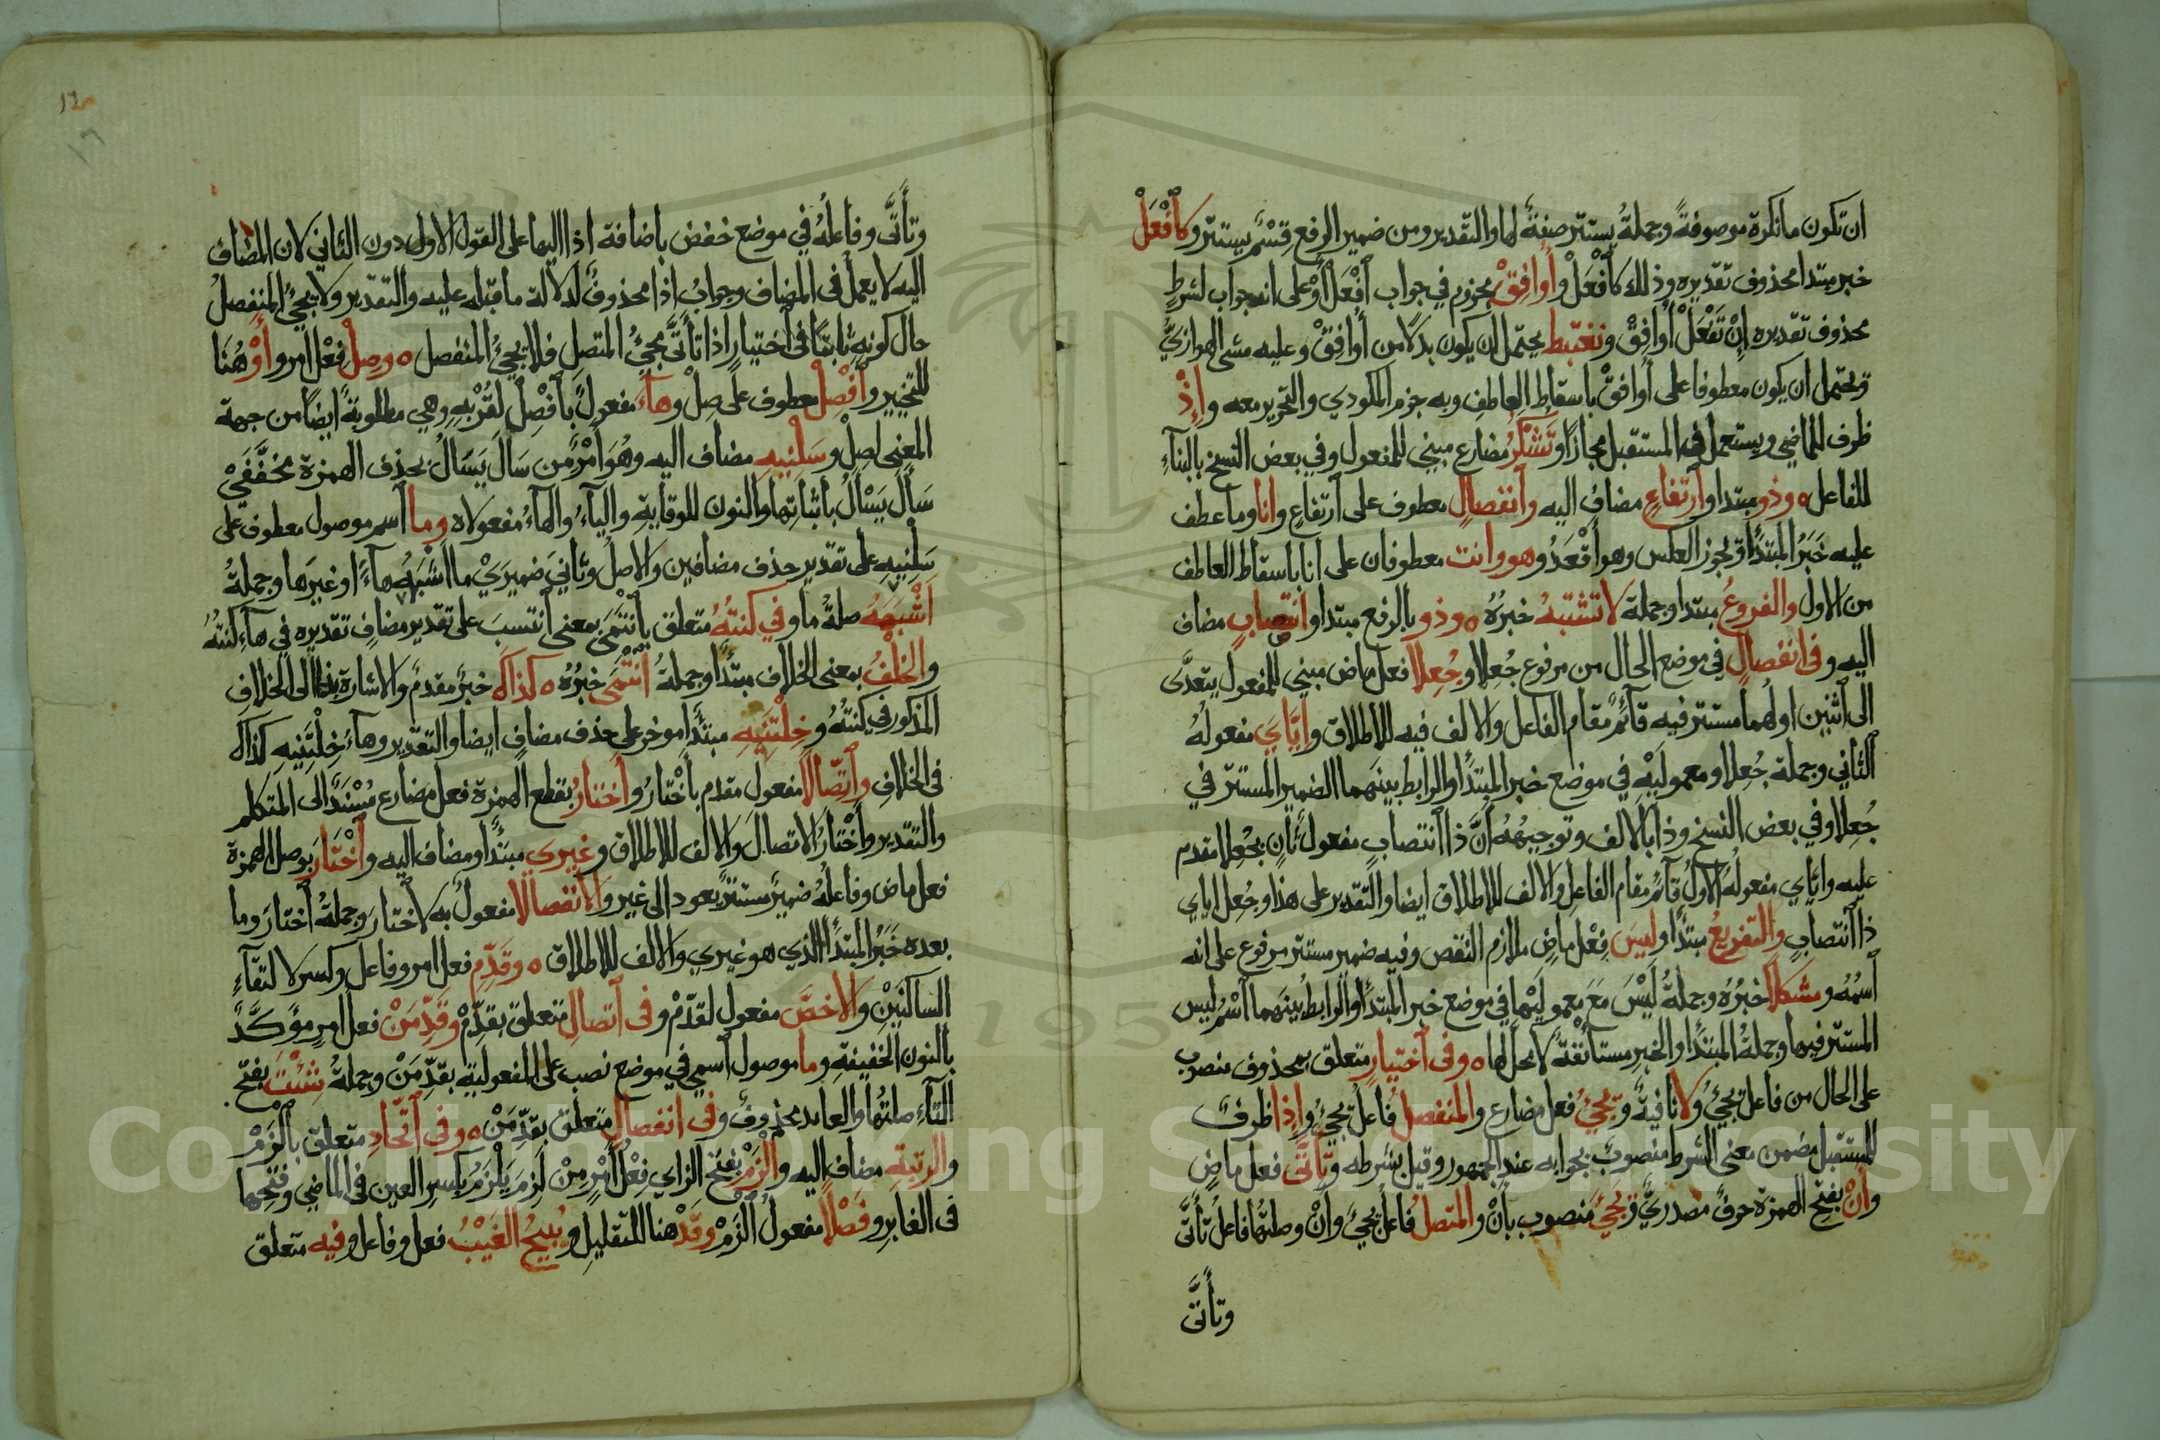 ان تكون ما نكرة موصوفةً وجملةُ يستتر صفةٌ لها والتقدير ومن ضمير الرفع قِسْمٌ يستتر وكَافْعَلْ
خبر مبتدا محذوف تقديره وذلك كَافْعَلْ وأُوافِقْ مجزوم في جواب أفْعَل أوْ على انه جواب لشرطٍ
محذوف تقديره اِنْ تَفْعَلْ أُوافِقْ ونغتبط يحتمل ان يكون بدلًا من أُوافِقْ وعليه مشى الهوّاريّ
ويحتمل ان يكون معطوفا على أوافقْ باسقاط العاطف وبه جزم المكودي والتحرير معه وإِذْ
ظرف للماضي ويستعمل في المستقبل مجازًا وتُشْكَرُ مضارع مبني للمفعول وفي بعض النسخ بالبناءِ
للفاعل ٥ وذو مبتدا وارتفاعٍ مضاف اليه وانفصالٍ معطوف على ارتفاع وأنا وما عطف
عليه خَبَرُ المبتدأ ويجوز العكس وهو أقْعَدُ وهو وانت معطوفان على أنا باسقاط العاطف
من الاول والفروعُ مبتدا وجملة لا تشتبهُ خبرُهُ ٥ وذو بالرفع مبتدا وانتصابٍ مضاف
اليه وفي انفصالٍ في موضع الحال من مرفوع جُعِلا وجُعِلا فعل ماض مبني للمفعول يتعدَّى
الى اثنين اولهما مستتر فيه قائمٌ مقام الفاعل والالف فيه للاطلاق وايّاي مفعولُهُ
الثاني وجملة جُعِلا ومعموليْهِ في موضع خبر المبتدأ والرابط بينهما الضمير المستتر في
جُعِلا وفي بعض النسخ وذا بالالف وتوجيهُهُ انّ ذا انتصابٍ مفعولٌ ثانٍ بجُعِلا مقدم
عليه وايّاي مفعولُهُ الاولُ قائمٌ مقام الفاعل والالف للاطلاق ايضا والتقدير على هذا وجُعل اياي
ذا انتصابٍ والتفريعُ مبتدأ وليسَ فِعْل ماضٍ ملازم النقص وفيه ضمير مستتر مرفوع على انه
اسمُهُ ومشكلًا خبرُه وجملةُ لَيْسَ مَعَ معموليْها في موضع خبر المبتدأ والرابطُ بينهما اسْمُ ليس
المستتر فيها وجملةُ المبتدأ والخبرِ مستأنَفةٌ لا محلّ لها ٥ وفي اختيارٍ متعلق بمحذوف منصوب
على الحال من فاعل يجيُ ولا نافيةٌ ويجيُ فعل مضارع والمنفصلُ فاعلُ يجيُ وإذا ظرفٌ
للمستقبل مضمن معنى الشرط منصوبٌ بجوابه عند الجمهور وقيل بشرطه وتأتَّى فعل ماضٍ
وأنْ بفتح الهمزة حرفٌ مصدريٌّ ويَجيَ منصوب بأنْ والمتصلُ فاعلُ يجيَ وأنْ وصلتُها فاعلُ تأتَّى
وتأتَّى
وتأتَّى وفاعلُهُ في موضع خفض باضافة اذا اليها على القول الاول دون الثاني لان المضاف
اليه لا يعمل في المضاف وجوابُ اذا محذوفٌ لدلالة ما قبله عليه والتقدير ولا يجيُ المنفصلُ
حال كونهِ ثابتًا في اختيارٍ اذا تأتَّى مجيُ المتصلِ فلا يجيُ المنفصل ٥ وصِلْ فعل امر وأوْ هُنَا
للتخيير وافْصِلْ معطوف على صِلْ وهاءَ مفعولٌ بافْصِل لقُرْبهِ وهي مطلوبةٌ ايضًا من جهة
المعنى لصِلْ وسَلْنِيهِ مضاف اليه وهُوَ أمْرٌ من سَالَ يَسَالُ بحذف الهمزة مخفَّفَيْ
سَأل يَسْألُ باثباتها والنون للوقاية والياءُ والهاءُ مفعولاه وما اسم موصول معطوف على
سَلْنِيهِ على تقدير حذف مضافين والاصلُ وثانيَ ضميرَيْ ما اشبَهَهُ هاءً او غيرَها وجملةُ
أشْبَهَهُ صلةُ ما وفي كنتُهُ متعلق بانْتَمَى بمعنى انتسبَ على تقدير مضافٍ تقديره في هاءِ كنتُهُ
والخُلْفُ بمعنى الخلاف مبتدأ وجملةُ انْتَمَى خبرُهُ ٥ كذاكَ خبرٌ مقدمٌ والاشارة بذا الى الخلافِ
المذكور في كنتُهُ وخِلْتَنِيهِ مبتدأ موخر على حذف مضافٍ ايضا والتقدير وهاءُ خِلْتَنِيهِ كذاك
في الخلافِ واتّصالًا مفعول مقدم باخْتارُ وأختارُ بقطع الهمزة فعل مضارع مُسْنَدٌ الى المتكلم
والتقدير وأخْتارُ الاتصالَ والالف للاطلاق وغيري مبتدأ ومضاف اليه واخْتارَ بوصل الهمزة
فعل ماض وفاعلُهُ ضميرٌ مستترٌ يعود الى غير والانفصالا مفعولٌ به لاختارَ وجملةُ اختارَ وما
بعده خَبَرُ المبتدأ الذي هو غيري والالف للاطلاق ٥ وقَدِّمِ فعل امر وفاعل وكسر لالتقاءِ
الساكنَيْنِ والاخصَّ مفعول لقدّمْ وفي اتصالِ متعلق بقدِّمْ وقَدِّمَنْ فعل امرٍ مؤكَّدٌ
بالنون الخفيفةِ وما موصول اسمي في موضع نصب على المفعولية بقدِّمَنْ وجملةُ شئتَ بفتح
التاءِ صلتُها والعايد محذوفٌ وفي انفصالِ متعلق بقدِّمَنْ ٥ وفي اتّحادِ متعلق بالزَمْ
والرتبةِ مضاف اليه والْزَمْ بفتح الزاي فِعْلُ أمْرٍ مِنْ لَزِمَ يَلْزَمُ بكسر العين في الماضي وفتحها
في الغابر وفَصْلًا مفعولُ الْزَمْ وقَدْ هنا للتقليل ويُبيحُ الغَيْبُ فعل وفاعل وفيه متعلق
١٦
١٦
Copyright © King Saud University
195